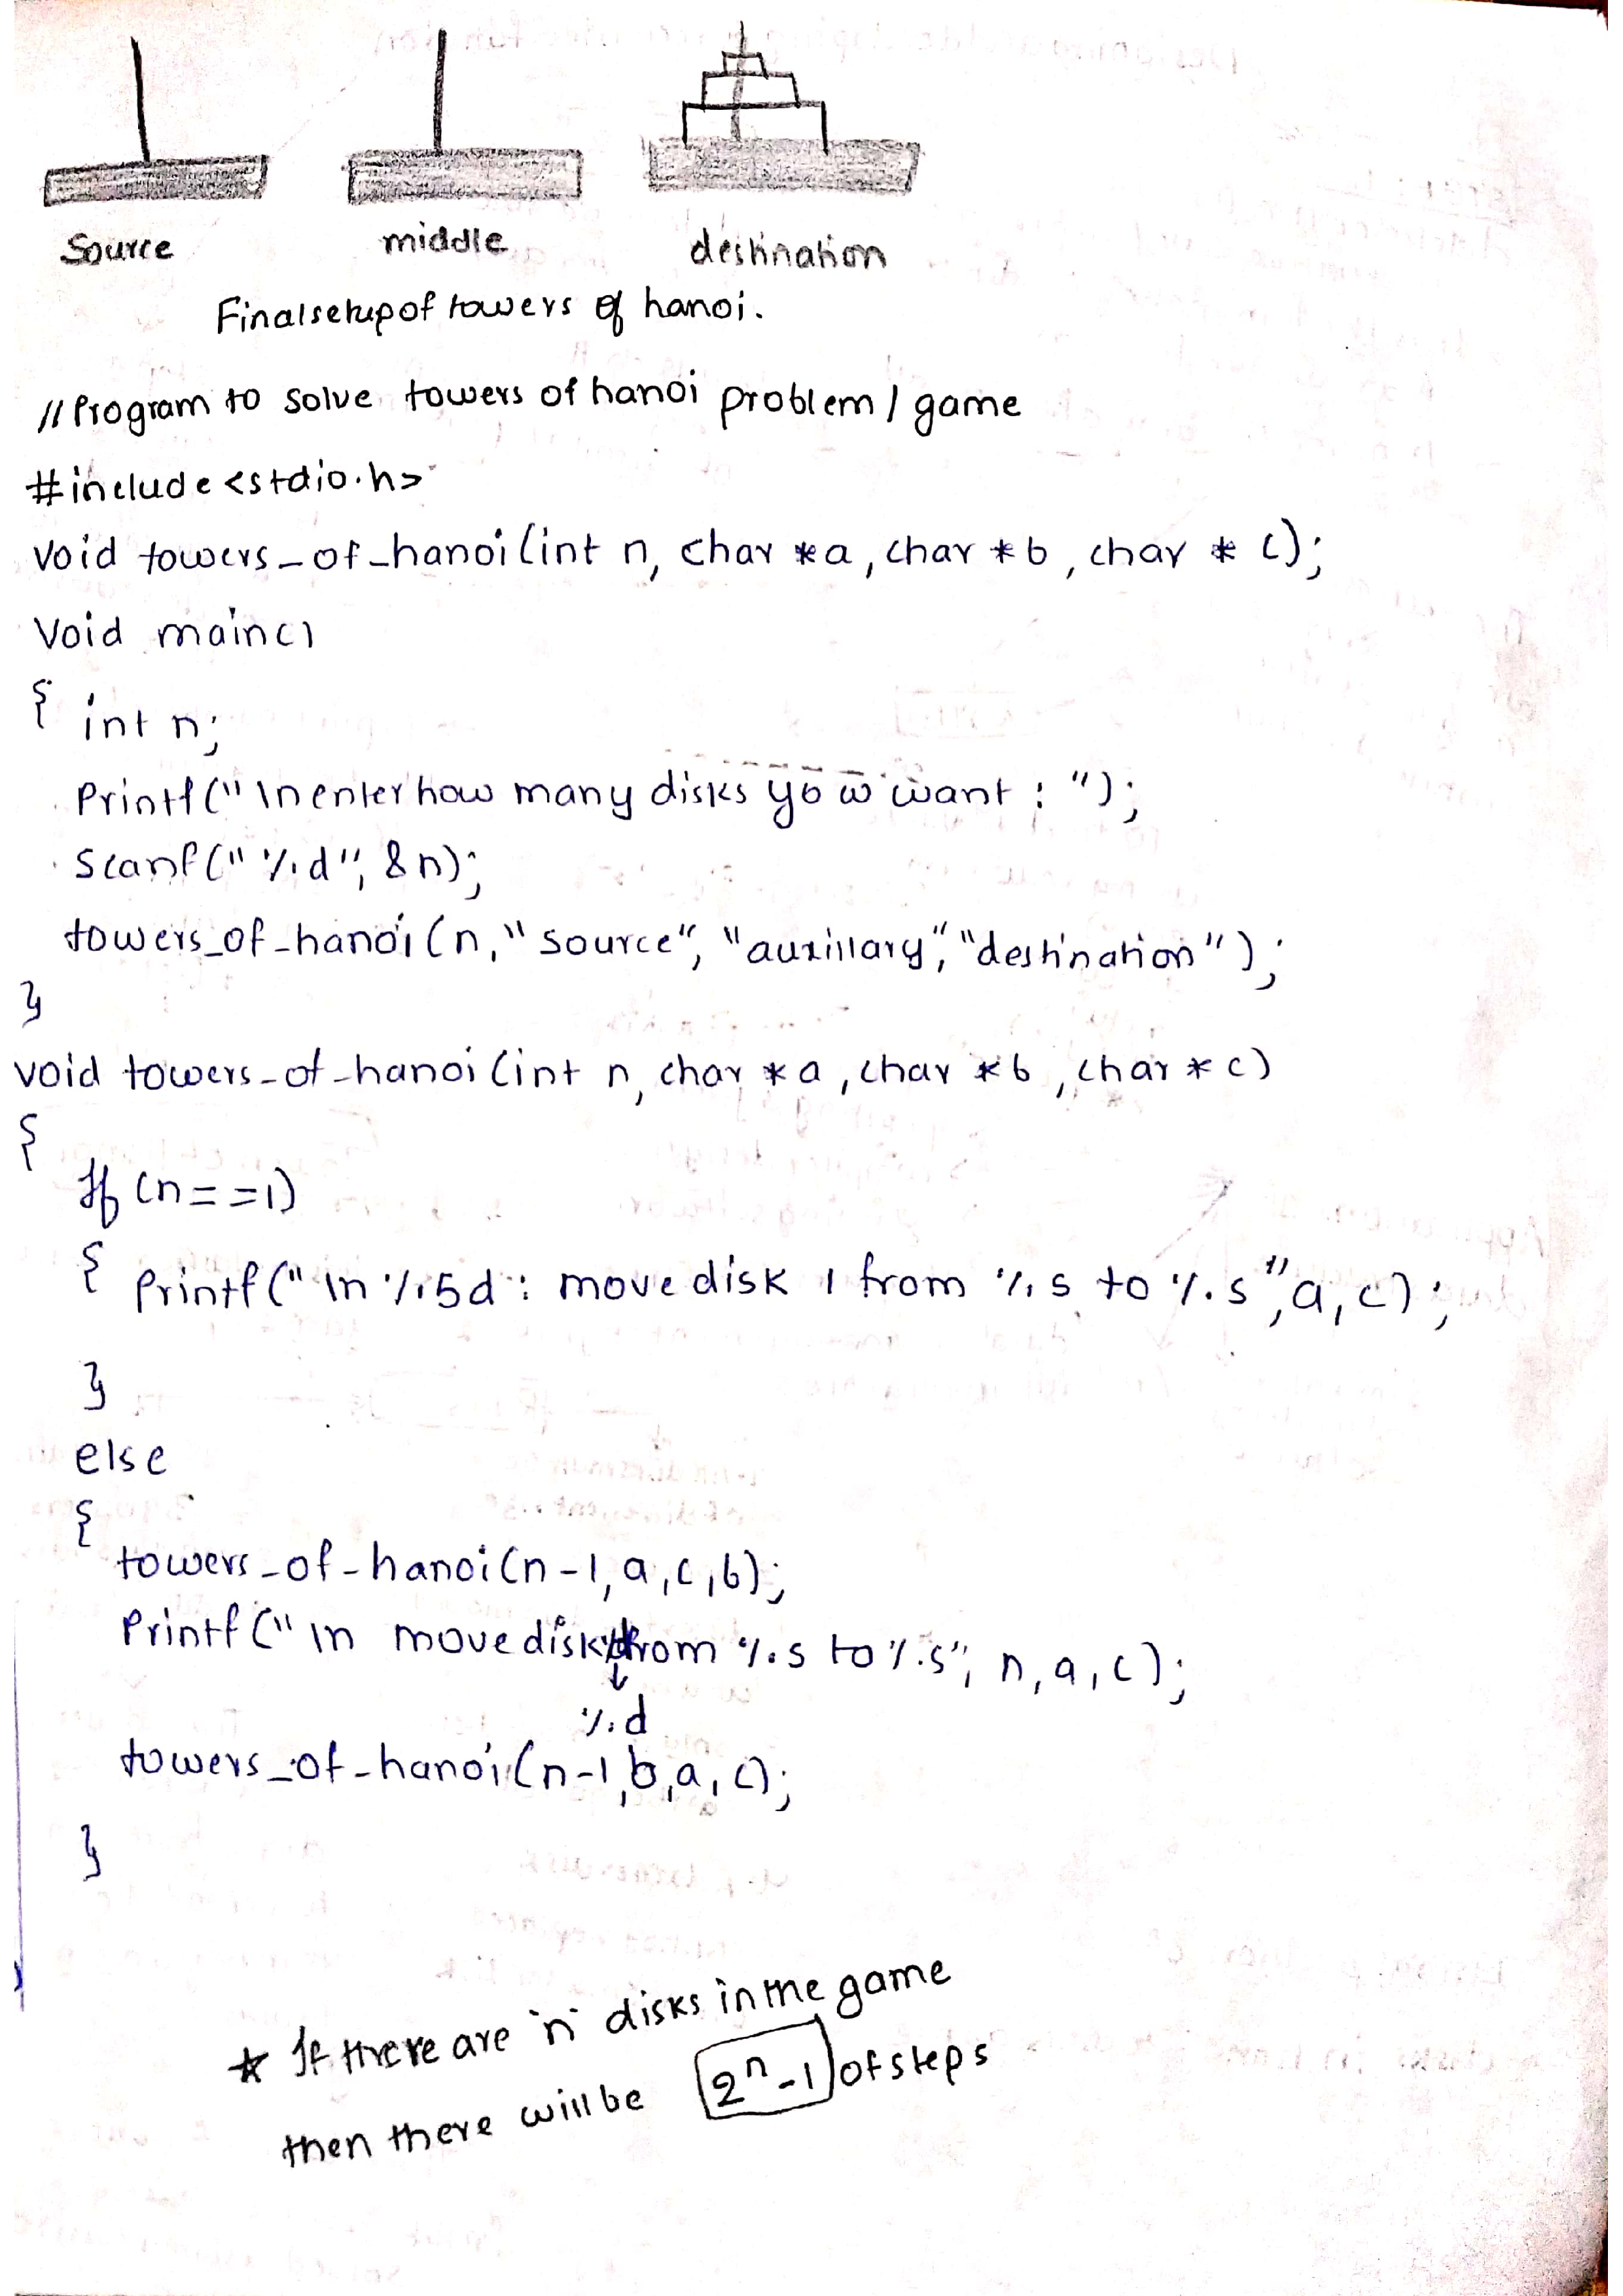 Source middle destination
Final setup of towers of hanoi.
// Program to solve towers of hanoi problem / game
#include <stdio.h>
void towers_of_hanoi (int n, char *a, char *b, char *c);
Void main()
{ int n;
Printf("\n enter how many disks you want : ");
Scanf("%d", &n);
towers_of_hanoi (n, "source", "auxillary", "destination");
}
void towers_of_hanoi (int n, char *a, char *b, char *c)
{
If (n==1)
{ Printf("\n %5d : move disk 1 from %s to %s", a, c);
}
else
{
towers_of_hanoi (n-1, a, c, b);
Printf("\n move disk from %s to %s", n, a, c);
%d
towers_of_hanoi (n-1, b, a, c);
}
}
* If there are 'n' disks in the game
then there will be 2ⁿ-1 of steps